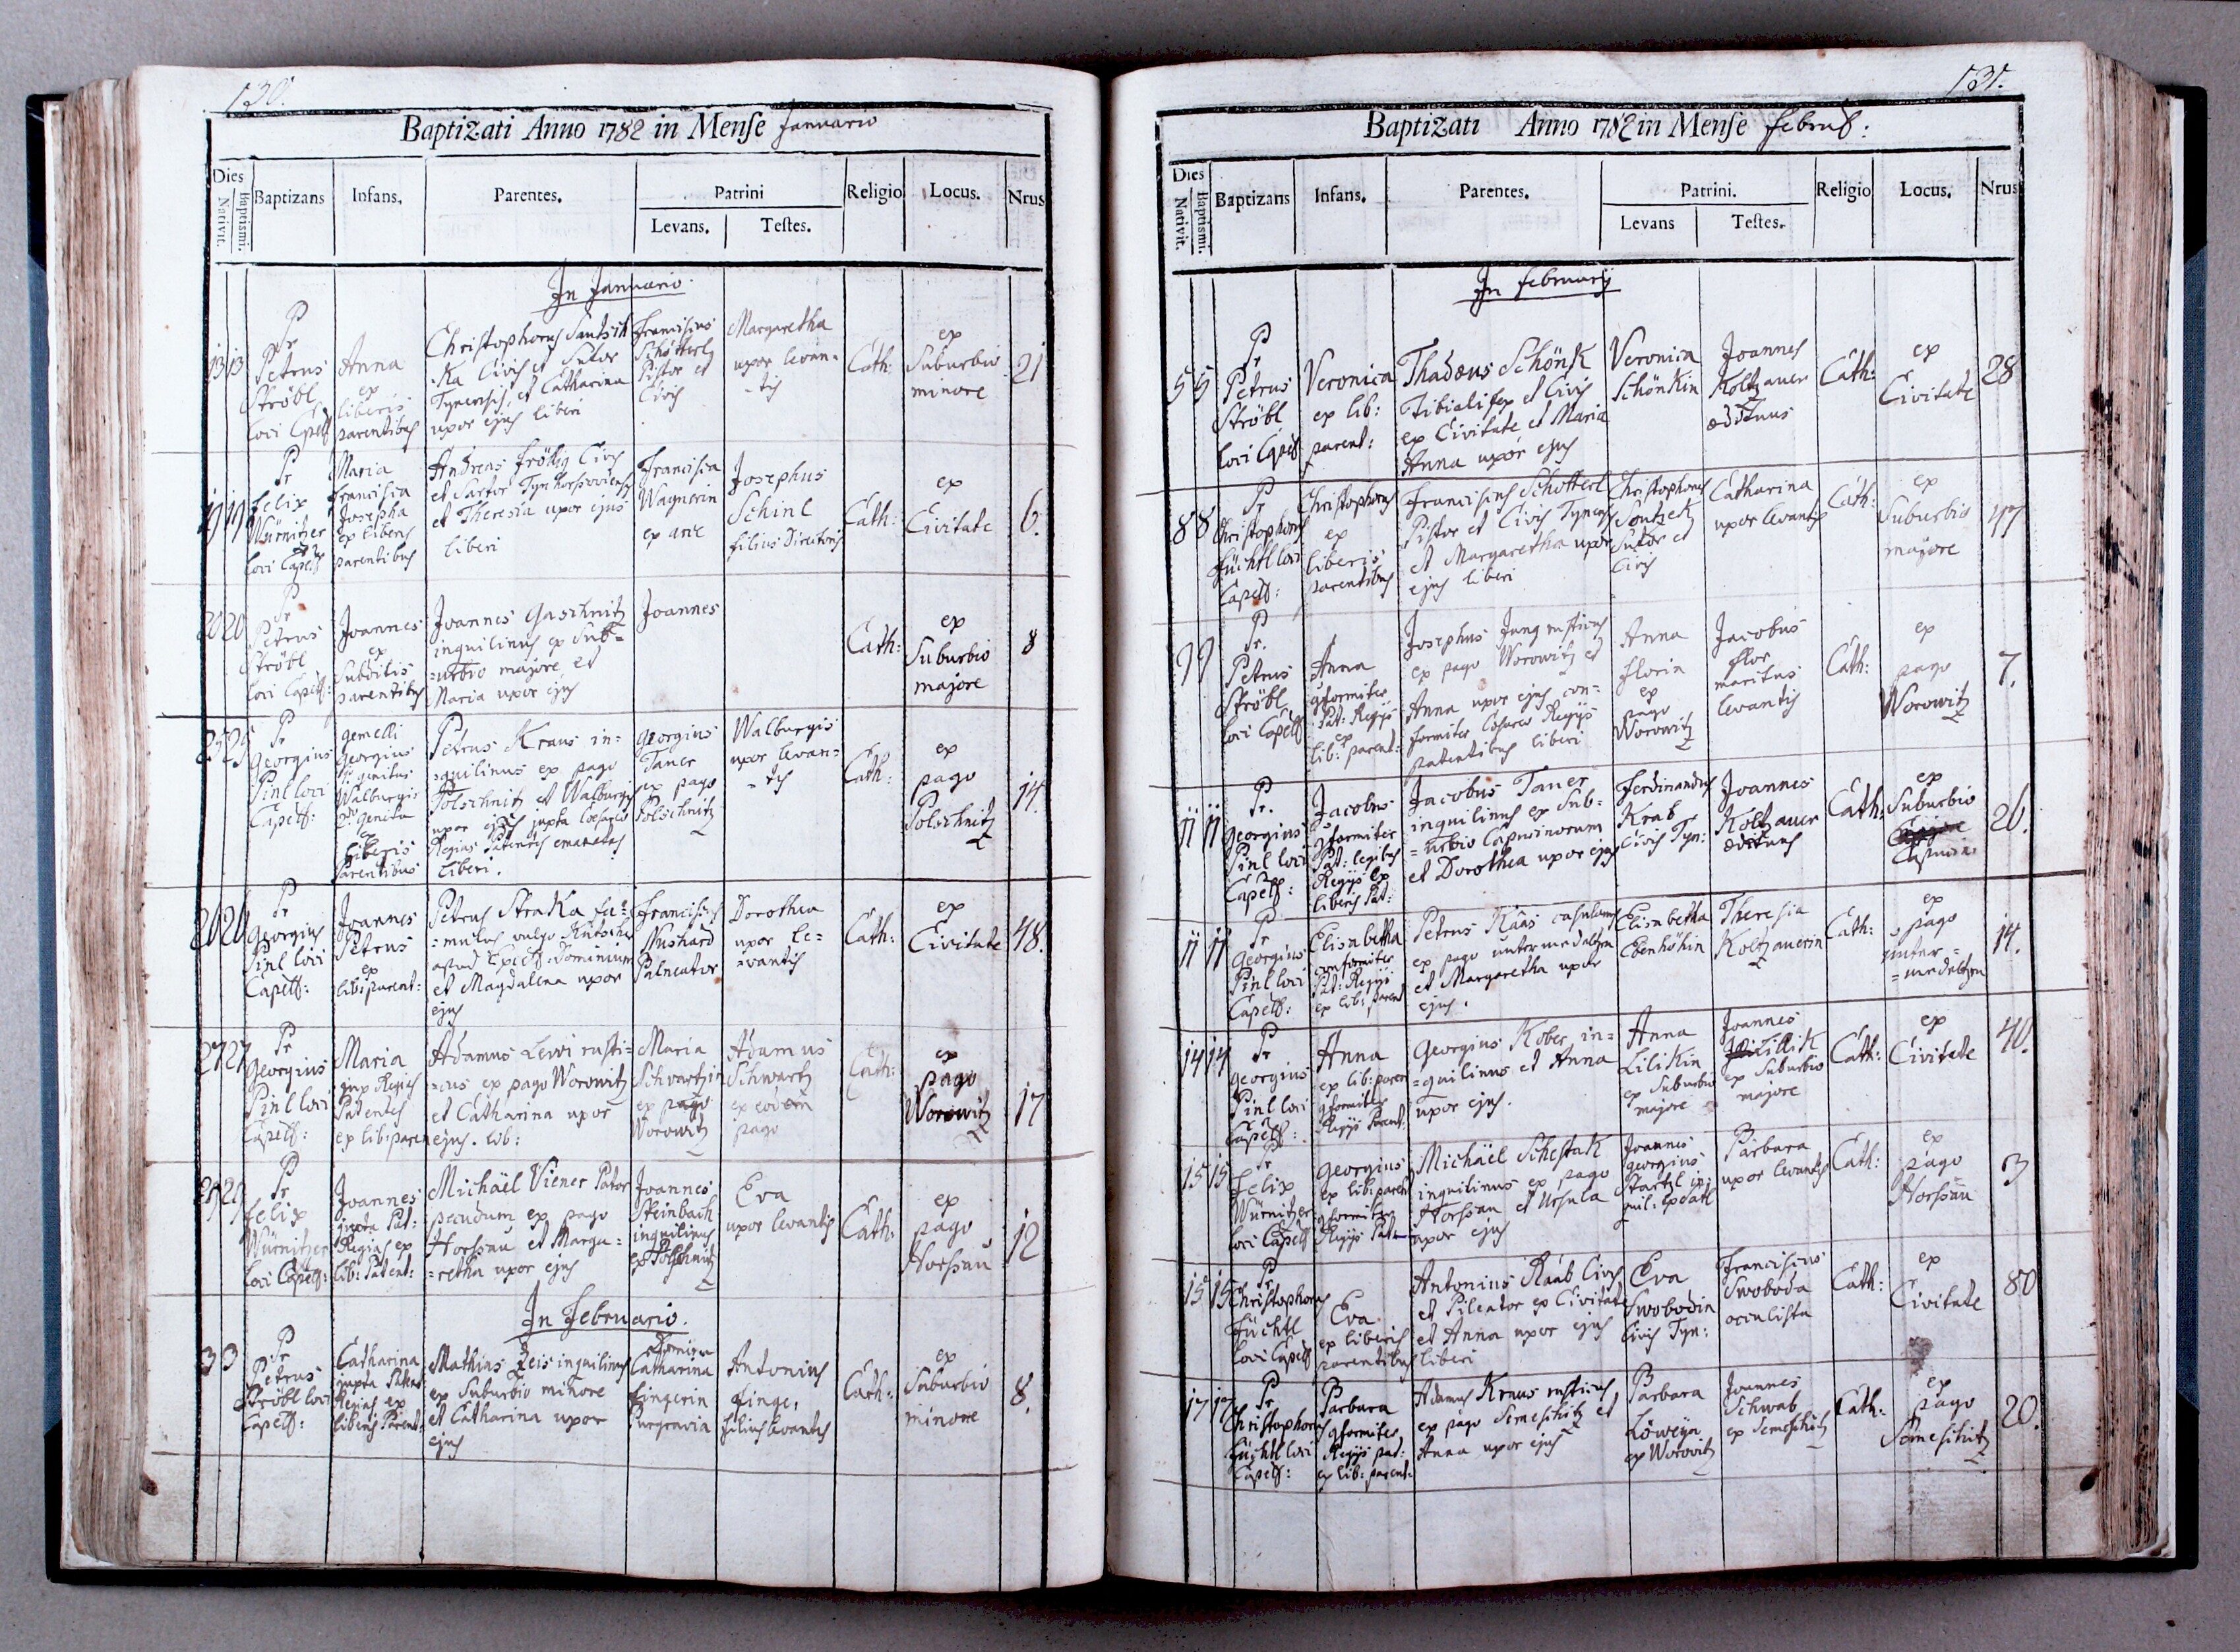 130.
Baptizati Anno 1782 in Mense Januario
Dies
Nativit.
Baptismi.
Baptizans
Infans.
Parentes.
Patrini
Levans.
Testes.
Religio
Locus.
Nrus
In Januario.
13 13
Pr
Petrus
Ströbl
loci Capell
Anna
ex
liberis
parentibus
Christophorus
-Ka Civis et Sutor
et Catharina
uxor ejus liberi
Franciscus
Schötterl
Pistor et
Civis
Margaretha
uxor levan-
-tis
Cath:
ex
Suburbio
minore
21
19 19
Pr
Felix
Würnitzer
loci Capell
Maria
Francisca
Josepha
ex liberis
parentibus
Andreas Frötig Civis
et Sartor
et Theresia uxor ejus
liberi
Francisca
Wagnerin
ex arce
Josephus
Schinl
filius Directoris
Cath:
ex
Civitate
6.
20 20
Pr
Petrus
Ströbl
loci Capell:
Joannes
ex
Subditis
parentibus
Joannes Gaschnitz
inquilinus ex Sub-
=urbio majore et
Maria uxor ejus
Joannes
Cath:
ex
Suburbio
majore
8
25 25
Pr
Georgius
Pinl loci
Capell:
gemelli
Georgius
1mo genitus
Walburgis
2do genita
ex
liberis
Parentibus
Petrus Kraus in-
=quilinus ex pago
Polschnitz et Walburgis
uxor ejus juxta Caesareo
Regias Patentes emanatas
liberi.
Georgius
Taner
ex pago
Polschnitz
Walburgis
uxor levan-
-tis
Cath:
ex
pago
Polschnitz
14.
26 26
Pr
Georgius
Pinl loci
Capell:
Joannes
Petrus
ex
lib: parent:
Petrus Straka fa-
=mulus vulgo Kutscher
apud Dominium
et Magdalena uxor
ejus
Franciscus
Nushard
Palneator
Dorothea
uxor le-
=vantis
Cath:
ex
Civitate
48.
27 27
Pr
Georgius
Pinl loci
Capell:
Maria
jux Regias
Patentes
ex lib: paren
Adamus Lewi rusti-
=cus ex pago Worowitz
et Catharina uxor
ejus. lib:
Maria
Schwartzin
ex pago
Worowitz
Adamus
Schwartz
ex eodem
pago
Cath:
ex
pago
Worowitz
17
29 29
Pr
Felix
Würnitzer
loci Capell:
Joannes
juxta Pat:
Regias ex
lib: Patent:
Michaël Viener Pator
pecudum ex pago
Horssau et Marga-
=retha uxor ejus
Joannes
Steinbach
inquilinus
ex Polschnitz
Eva
uxor levantis
Cath:
ex
pago
Horssau
12
In Februario.
3 3
Pr
Petrus
Ströbl loci
Capell:
Catharina
juxta Patent
Regias ex
liberis Parent:
Mathias Zeis inquilinus
ex Suburbio minore
et Catharina uxor
ejus
Domina
Catharina
Fingerin
Purgravia
Antonius
Finger
filius levantis
Cath:
ex
Suburbio
minore
8.
131.
Baptizati Anno 1782 in Mense Februs:
Dies
Nativit.
Baptismi.
Baptizans
Infans.
Parentes.
Patrini.
Levans
Testes.
Religio
Locus.
Nrus
In February
5 5
Pr
Petrus
Ströbl
loci Capell
Veronica
ex lib:
parent:
Thadaeus Schönk
Tibialifex et Civis
ex Civitate et Maria
Anna uxor ejus
Veronica
Schönkin
Joannes
Koltzauer
aedituus
Cath:
ex
Civitate
28
8 8
Pr
Christophorus
Füchtl loci
Capell:
Christophorus
ex
liberis
parentibus
Franciscus Schotterl
Pistor et Civis Tynensis
et Margaretha uxor
ejus liberi
Christophorus
Sontzek
Sutor et
Civis
Catharina
uxor levantis
Cath:
ex
Suburbio
majore
47
Pr.
Petrus
Ströbl
loci Capell
Anna
qformiter
Pat: Regijs
ex
lib: parent:
Josephus Jung rusticus
ex pago Worowitz et
Anna uxor ejus con-
formiter Caesareo Regijs
patentibus liberi
Anna
Floria
ex
pago
Worowitz
Jacobus
Flor
maritus
levantis
Cath:
ex
pago
Worowitz
7.
11 11
Pr.
Georgius
Pinl loci
Capell:
Jacobus
qformiter
Pat: legibus
Regijs ex
liberis Pat:
Jacobus Taner
inquilinus ex Sub-
=urbio Capucinorum
et Dorothea uxor ejus
Ferdinandus
Krab
Civis Tyn:
Joannes
Koltzauer
aedituus
Cath:
ex
Suburbio
26.
11 11
Pr
Georgius
Pinl loci
Capell:
Elisabetha
conformiter
Pat: Regijs
ex lib: parent
Petrus Käas casularius
ex pago
et Margaretha uxor
ejus.
Elisabetha
Ebenhöhin
Theresia
Koltzauerin
Cath:
ex
pago
unter-
14.
14 14
Pr
Georgius
Pinl loci
Capell:
Anna
ex lib: paren
qformiter
Regijs Parent:
Georgius Kober in-
=quilinus et Anna
uxor ejus.
Anna
Lilikin
ex Suburbio
majore
Joannes
Lillik
ex Suburbio
majore
Cath:
ex
Civitate
40.
15 15
Pr
Felix
Würnitzer
loci Capell
Georgius
ex lib: parent
qformiter
Regijs Pat:
Michaël Schestak
inquilinus ex pago
Horssau et Ursula
uxor ejus
Joannes
Georgius
Startzl
Barbara
uxor levantis
Cath:
ex
pago
Horssau
3
15 15
Pr
Christophorus
Füchtl
loci Capell
Eva
ex liberis
parentibus
Antonius Raab Civis
et Pileator ex Civitate
et Anna uxor ejus
liberi
Eva
Swobodin
Civis Tyn:
Franciscus
Swoboda
occulista
Cath:
ex
Civitate
80
17 17
Pr
Christophorus
Füchtl loci
Capell:
Barbara
qformiter
Regijs pat:
ex lib: parent:
Adamus Kraus rusticus
ex pago Semeschitz et
Anna uxor ejus
Barbara
Löweÿn
ex Worovitz
Joannes
Schwab
ex Semeschitz
Cath:
ex
pago
Semeschitz
20.